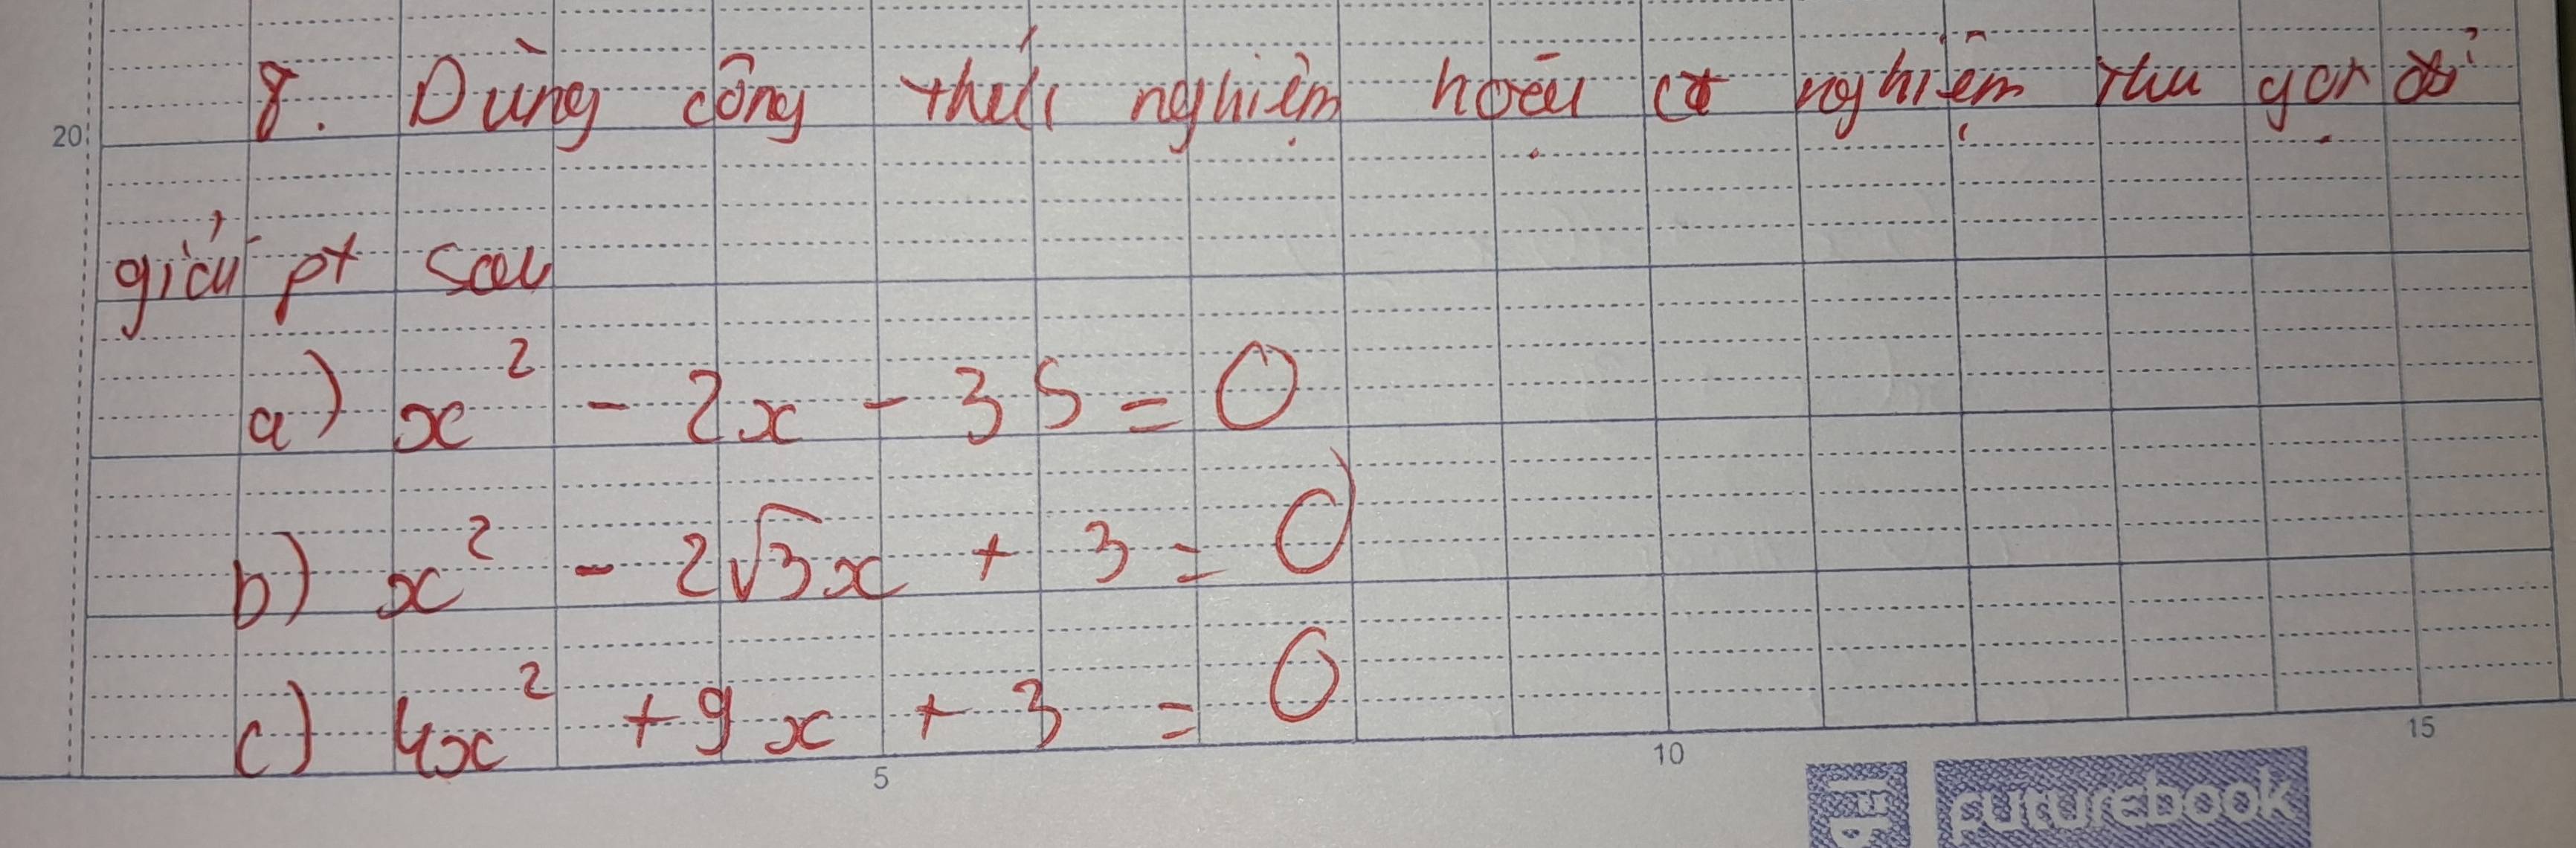 8. Dùng công thức nghiệm hoặc ct nghiệm thu gọn để
20
giải pt sau
a) x² - 2x - 35 = 0
b) x² - 2√3x + 3 = 0
c) 4x² + 9x + 3 = 0
5 10 15
futurebook